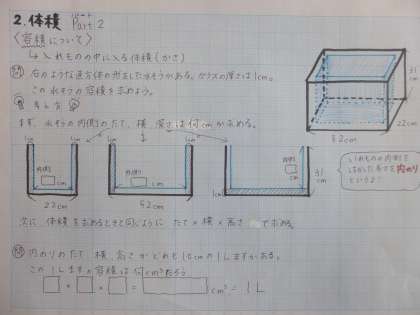 2.体積 Part 2
〈容積について〉
↳入れものの中に入る体積(かさ)
問 右のような直方体の形をした水そうがある。ガラスの厚さは1cm。
この水そうの容積を求めよう。
考え方
まず、水そうの内側のたて、横、深さは何cmか求める。
31cm
22cm
52cm
1cm 1cm 1cm 1cm
内側 cm
22cm
内側 cm
52cm
内側 cm
1cm
31cm
いれものの内側を
はかった長さを内のり
というよ!
次に、体積を求めるときと同じように たて×横×高さ で求める。
問 内のりのたて、横、高さがどれも10cmの1Lますがある。
この1Lますの容積は何cm³だろう
□×□×□=□cm³=1L